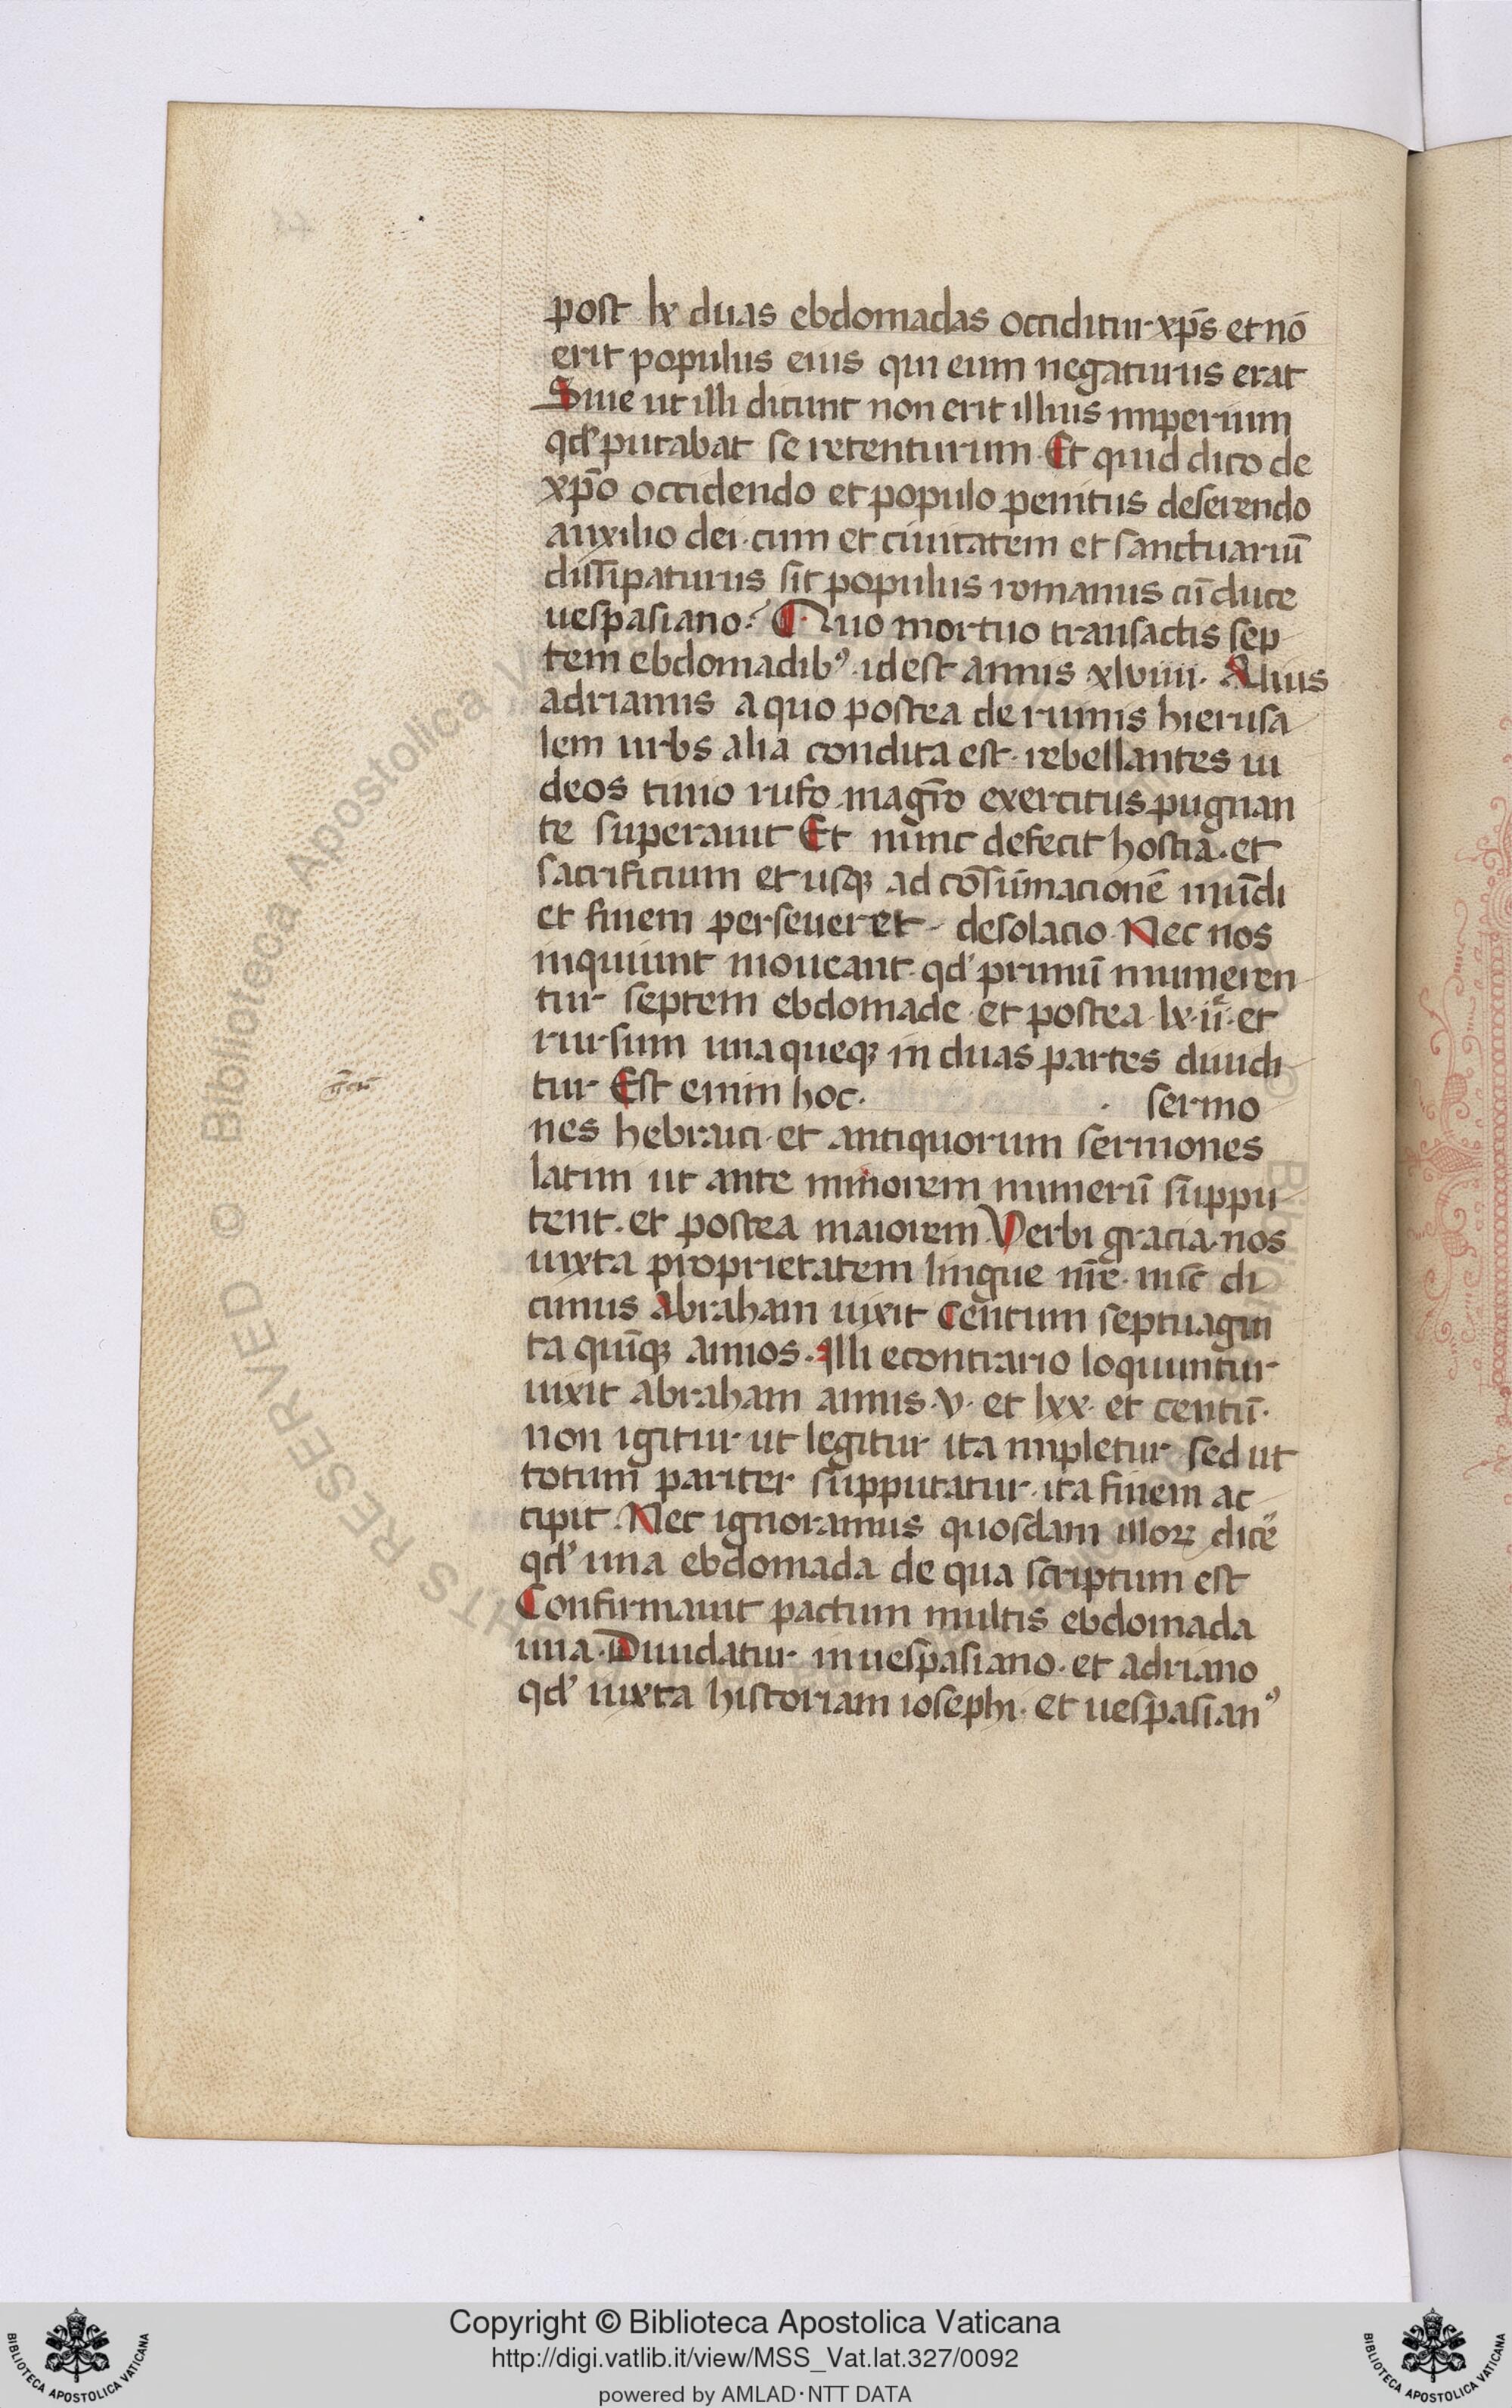 post lx duas ebdomadas occiditur xp̄s et nō
erit populus eius qui eum negaturus erat
Siue ut illi dicunt non erit illius imperium
qd' putabat se retenturum. Et quid dico de
xp̄o occidendo et populo penitus deserendo
auxilio dei. cum et ciuitatem et sanctuariū
dissipaturus sit populus romanus cū duce
uespasiano. Quo mortuo transactis sep
tem ebdomadib⁹. id est annis xlviiii. Alius
adrianus a quo postea de ruinis hierusa
lem urbs alia condita est. rebellantes iu
deos timo rufo magr̄o exercitus pugnan
te superauit Et nunc defecit hostia. et
sacrificium et usqꝫ ad cōsūmacionē mūdi
et finem perseueret desolacio. Nec nos
inquiunt moueant. qd' primū numeren
tur septem ebdomade. et postea lx.ii. et
rursum unaqueqꝫ in duas partes diuidi
tur Est enim hoc. sermo
nes hebraici. et antiquorum sermones
latini ut ante minorem numerū suppu
tent. et postea maiorem. Verbi gracia. nos
iuxta proprietatem lingue nr̄e. nūc di
cimus Abraham uixit Centum septuagin
ta quīqꝫ annos. Illi econtrario loquuntur
uixit abraham annis. v. et lxx. et centū.
non igitur ut legitur ita impletur sed ut
totum pariter supputatur. ita finem ac
cipit. Nec ignoramus quosdam illoꝝ dicē
qd' una ebdomada de qua scriptum est
Confirmauit pactum multis ebdomada
una. Diuidatur in uespasiano. et adriano
qd' iuxta historiam iosephi. et uespasian⁹
Copyright © Biblioteca Apostolica Vaticana
http://digi.vatlib.it/view/MSS_Vat.lat.327/0092
powered by AMLAD·NTT DATA